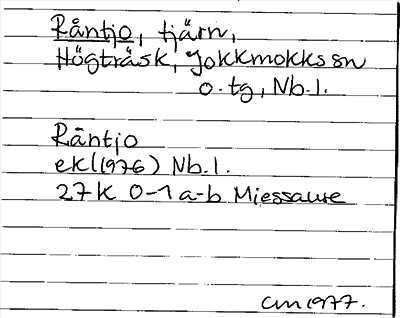 Råntjo, tjärn,
Högträsk, Jokkmokks sn
o. tg, Nb. l.
Råntjo
ekl (1976) Nb. l.
27 K 0-1 a-b Miessaure
CM 1977.